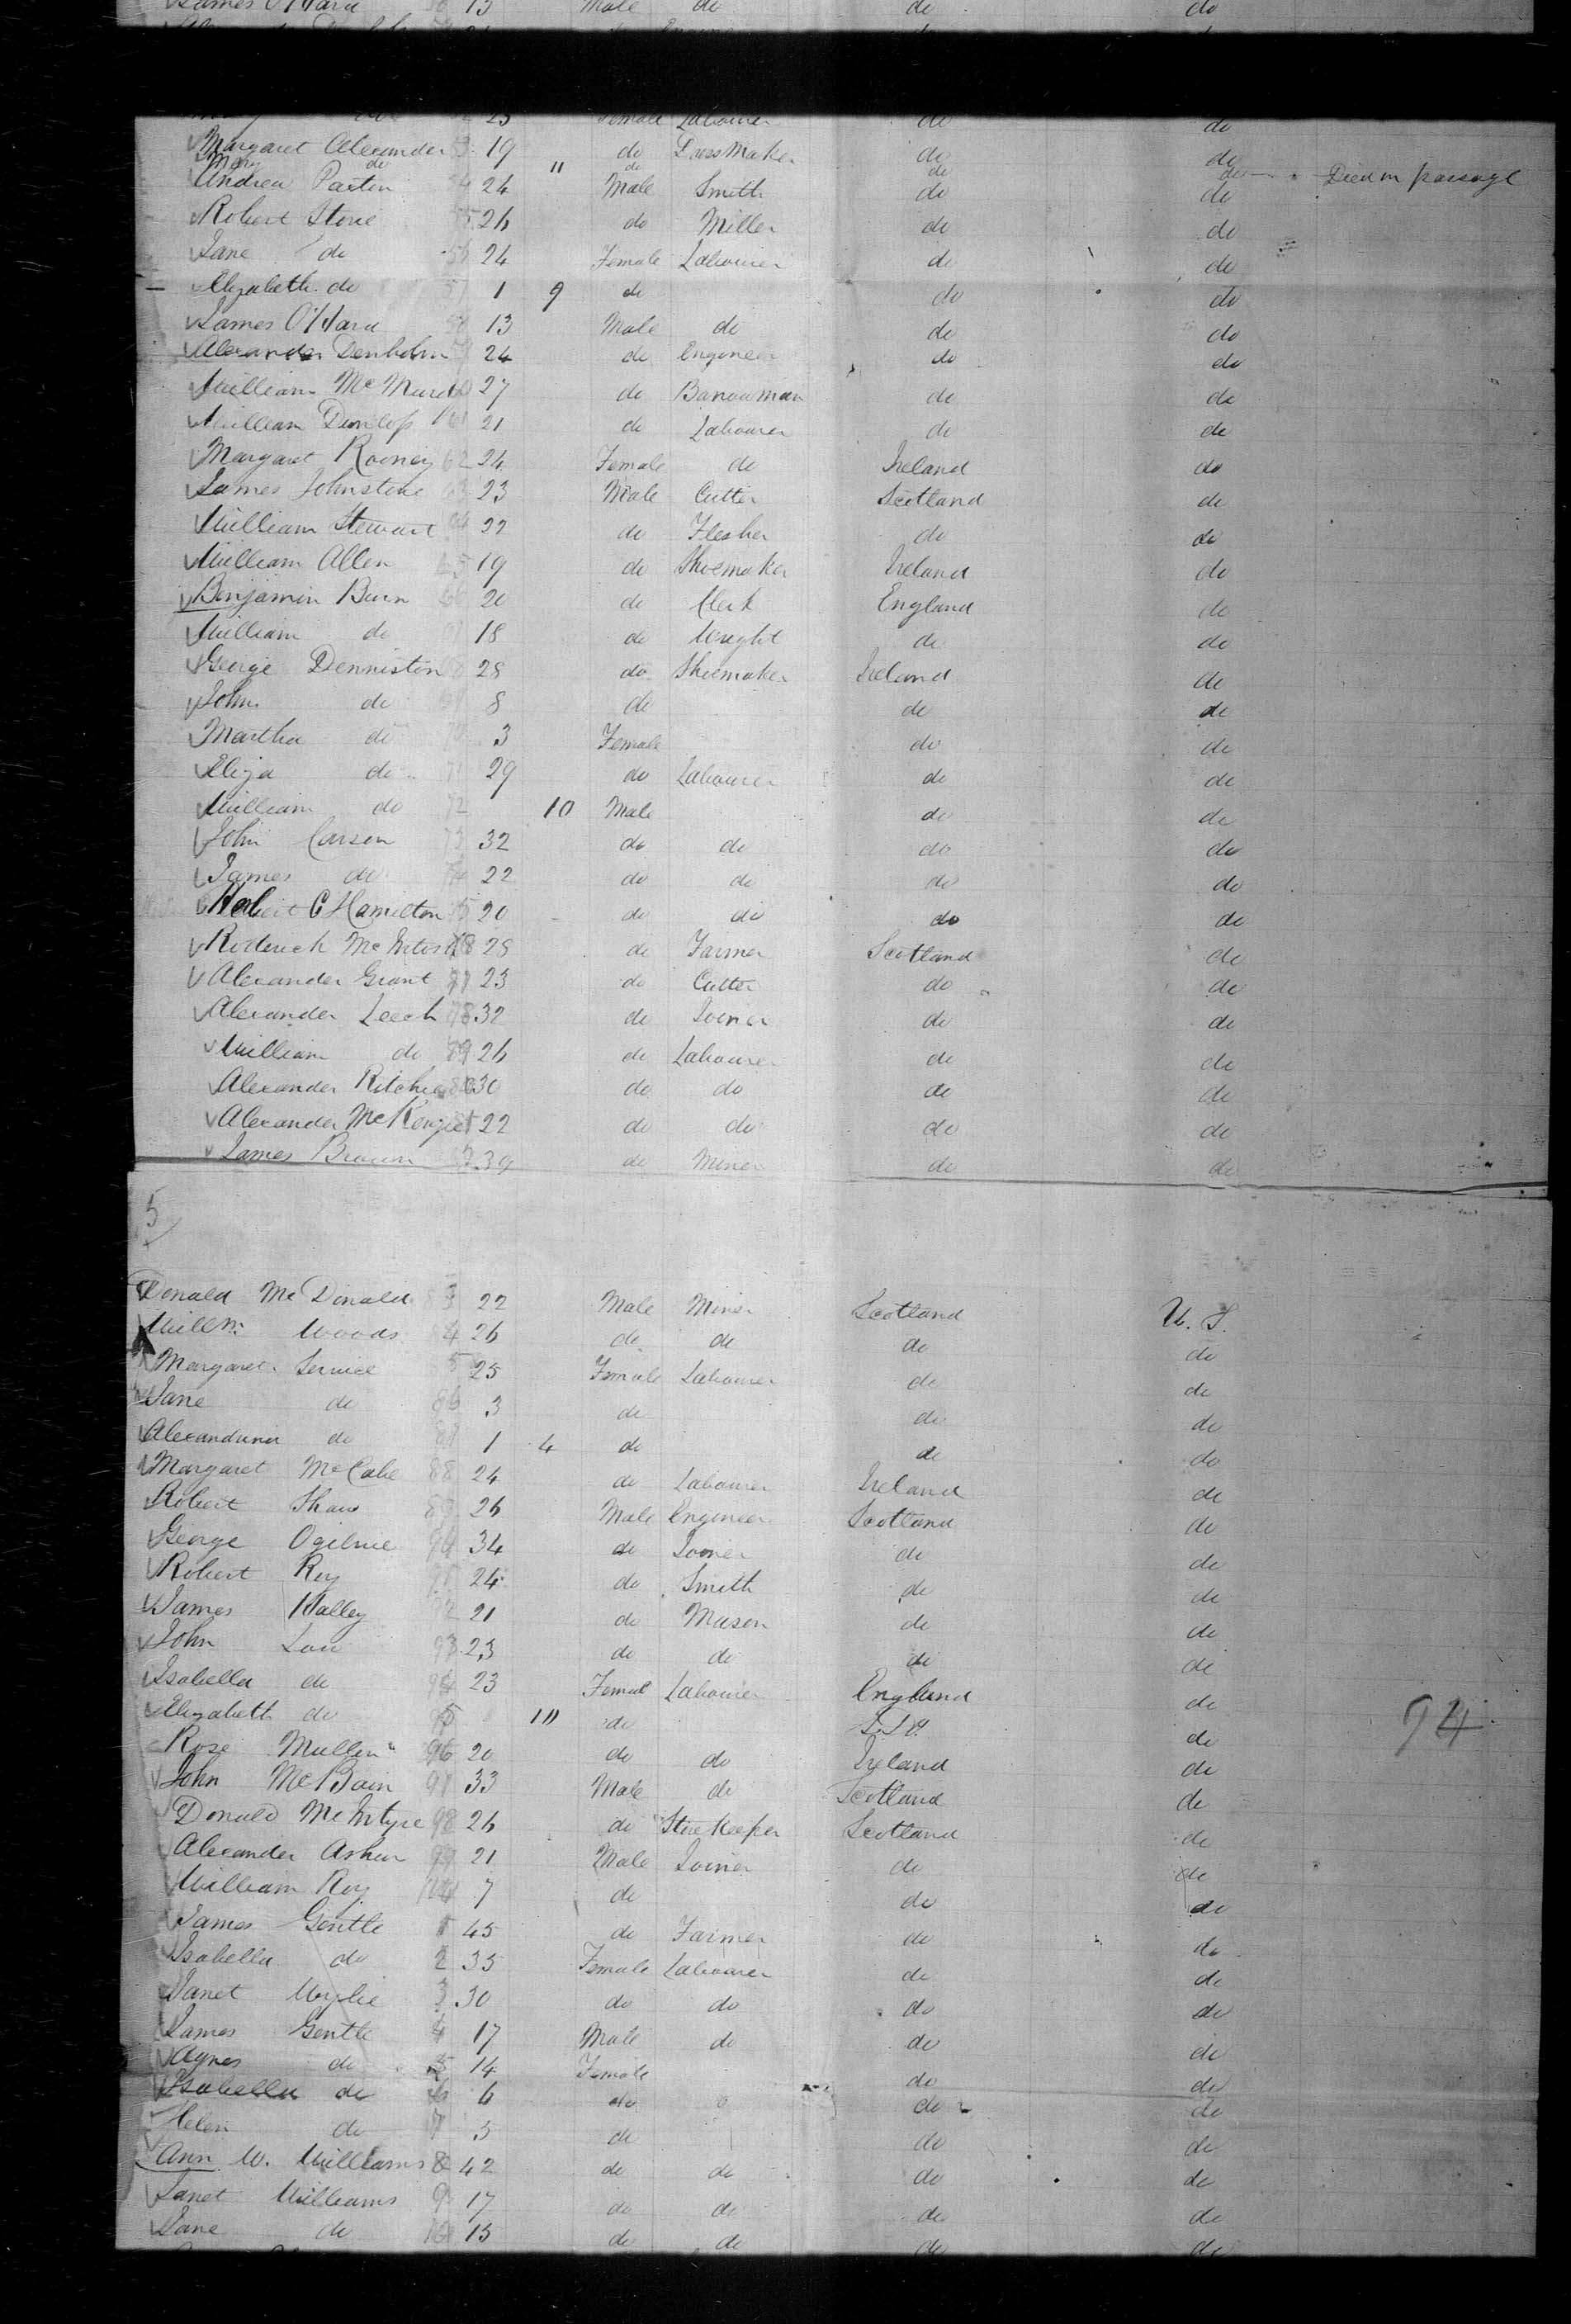 James O'Hara 13 Male do do do
do 23 Female Labourer do do
Margaret Alexander 53 19 do DressMaker do do
Mary do 11 do do do Died on passage
Andrew Paton 54 24 Male Smith do do
Robert Storie 55 26 do Miller do do
Jane do 56 24 Female Labourer do do
Elizabeth do 57 1 9 do do do
James O'Hara 58 13 Male do do do
Alexander Denholm 59 24 do Engineer do do
William McMurdo 27 do Banowman do do
William Dunlop 61 21 do Labourer do do
Margaret Rooney 62 24 Female do Ireland do
James Johnstone 63 23 Male Cutter Scotland do
William Stewart 64 22 do Flesher do do
William Allen 65 19 do Shoemaker Ireland do
Benjamin Burn 66 20 do Clerk England do
William do 67 18 do Wright do do
George Denniston 68 28 do Shoemaker Ireland do
John do 69 8 do do do
Martha do 70 3 Female do do
Eliza do 71 29 do Labourer do do
William do 72 10 Male do do
John Carson 73 32 do do do do
James do 74 22 do do do do
Robert C Hamilton 75 20 do do do do
Roderick McIntosh 28 do Farmer Scotland do
Alexander Grant 77 23 do Cutter do do
Alexander Leech 78 32 do Joiner do do
William do 79 26 do Labourer do do
Alexander Ritchie 80 30 do do do do
Alexander McKenzie 22 do do do do
James Brown 39 do Miner do do
5
Donald McDonald 83 22 Male Miner Scotland U. S.
Willm Woods 84 26 do do do do
Margaret Service 5 25 Female Labourer do do
Jane do 86 3 do do do
Alexandrina do 87 1 4 do do do
Margaret McCabe 88 24 do Labourer Ireland do
Robert Shaw 89 26 Male Engineer Scotland do
George Ogilvie 90 34 do Joiner do do
Robert Roy 91 24 do Smith do do
James Halley 92 21 do Mason do do
John Law 93 23 do do do do
Isabella do 94 23 Female Labourer England do
Elizabeth do 95 10 do do
Rose Mullen 96 20 do do Ireland do
John McBain 97 33 Male do Scotland do
Donald McIntyre 98 26 do StoreKeeper Scotland do
Alexander Asher 99 21 Male Joiner do do
William Roy 100 7 do do do
James Gentle 1 45 do Farmer do do
Isabella do 2 35 Female Labourer do do
Janet Wylie 3 30 do do do do
James Gentle 4 17 Male do do do
Agnes do 5 14 Female do do
Isabella do 6 6 do do do
Helen do 7 3 do do do
Ann W. Williams 8 42 do do do do
Janet Williams 9 17 do do do do
Jane do 10 15 do do do do
94